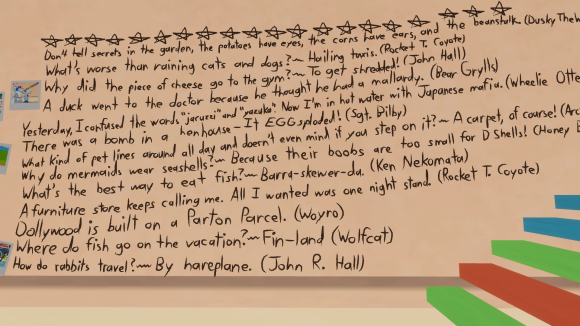 Don't tell secrets in the garden, the potatoes have eyes, the corns have ears, and the beanstalk. (Dusky The
What's worse than raining cats and dogs?~ Hailing taxis. (Rocket T. Coyote)
Why did the piece of cheese go to the gym?~ To get shredded! (John Hall)
A duck went to the doctor because he thought he had a mallardy. (Bear Grylls)
Yesterday, I confused the words "jacuzzi" and "yazuka". Now I'm in hot water with Japanese mafia. (Wheelie Otte
There was a bomb in a henhouse - It EGGsploded! (Sgt. Bilby)
What kind of pet lines around all day and doesn't even mind if you step on it?~ A carpet, of course! (Arc
Why do mermaids wear seashells?~ Because their boobs are too small for D Shells! (Honey B
What's the best way to eat fish?~ Barra-skewer-da. (Ken Nekomata)
A furniture store keeps calling me. All I wanted was one night stand. (Rocket T. Coyote)
Dollywood is built on a Parton Parcel. (Woyro)
Where do fish go on the vacation?~ Fin-land (Wolfcat)
How do rabbits travel?~ By hareplane. (John R. Hall)